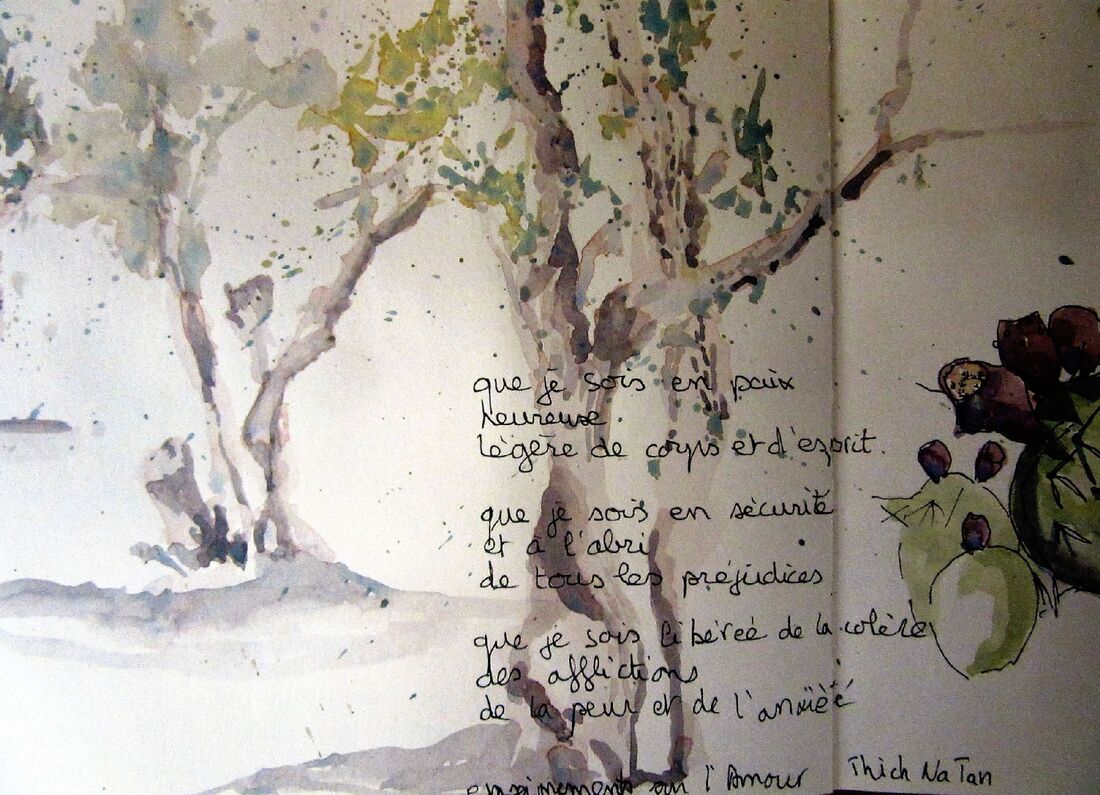 que je sois en paix
heureuse
légère de corps et d'esprit.
que je sois en sécurité
et à l'abri
de tous les préjudices
que je sois libéreé de la colère
des afflictions
de la peur et de l'anxïèté
sur l'Amour Thich Na Tan